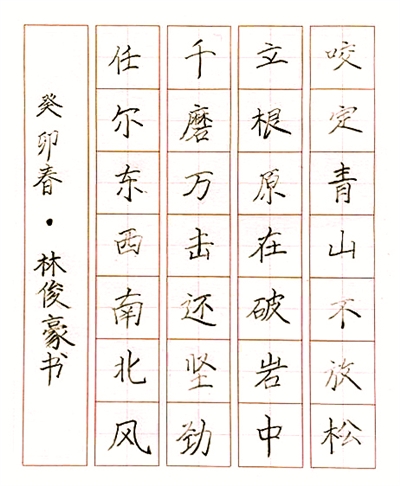 咬定青山不放松
立根原在破岩中
千磨万击还坚劲
任尔东西南北风
癸卯春·林俊豪书